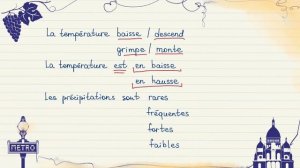 La température baisse / descend
grimpe / monte
La température est en baisse
en hausse
Les précipitations sont rares
fréquentes
fortes
faibles
METRO